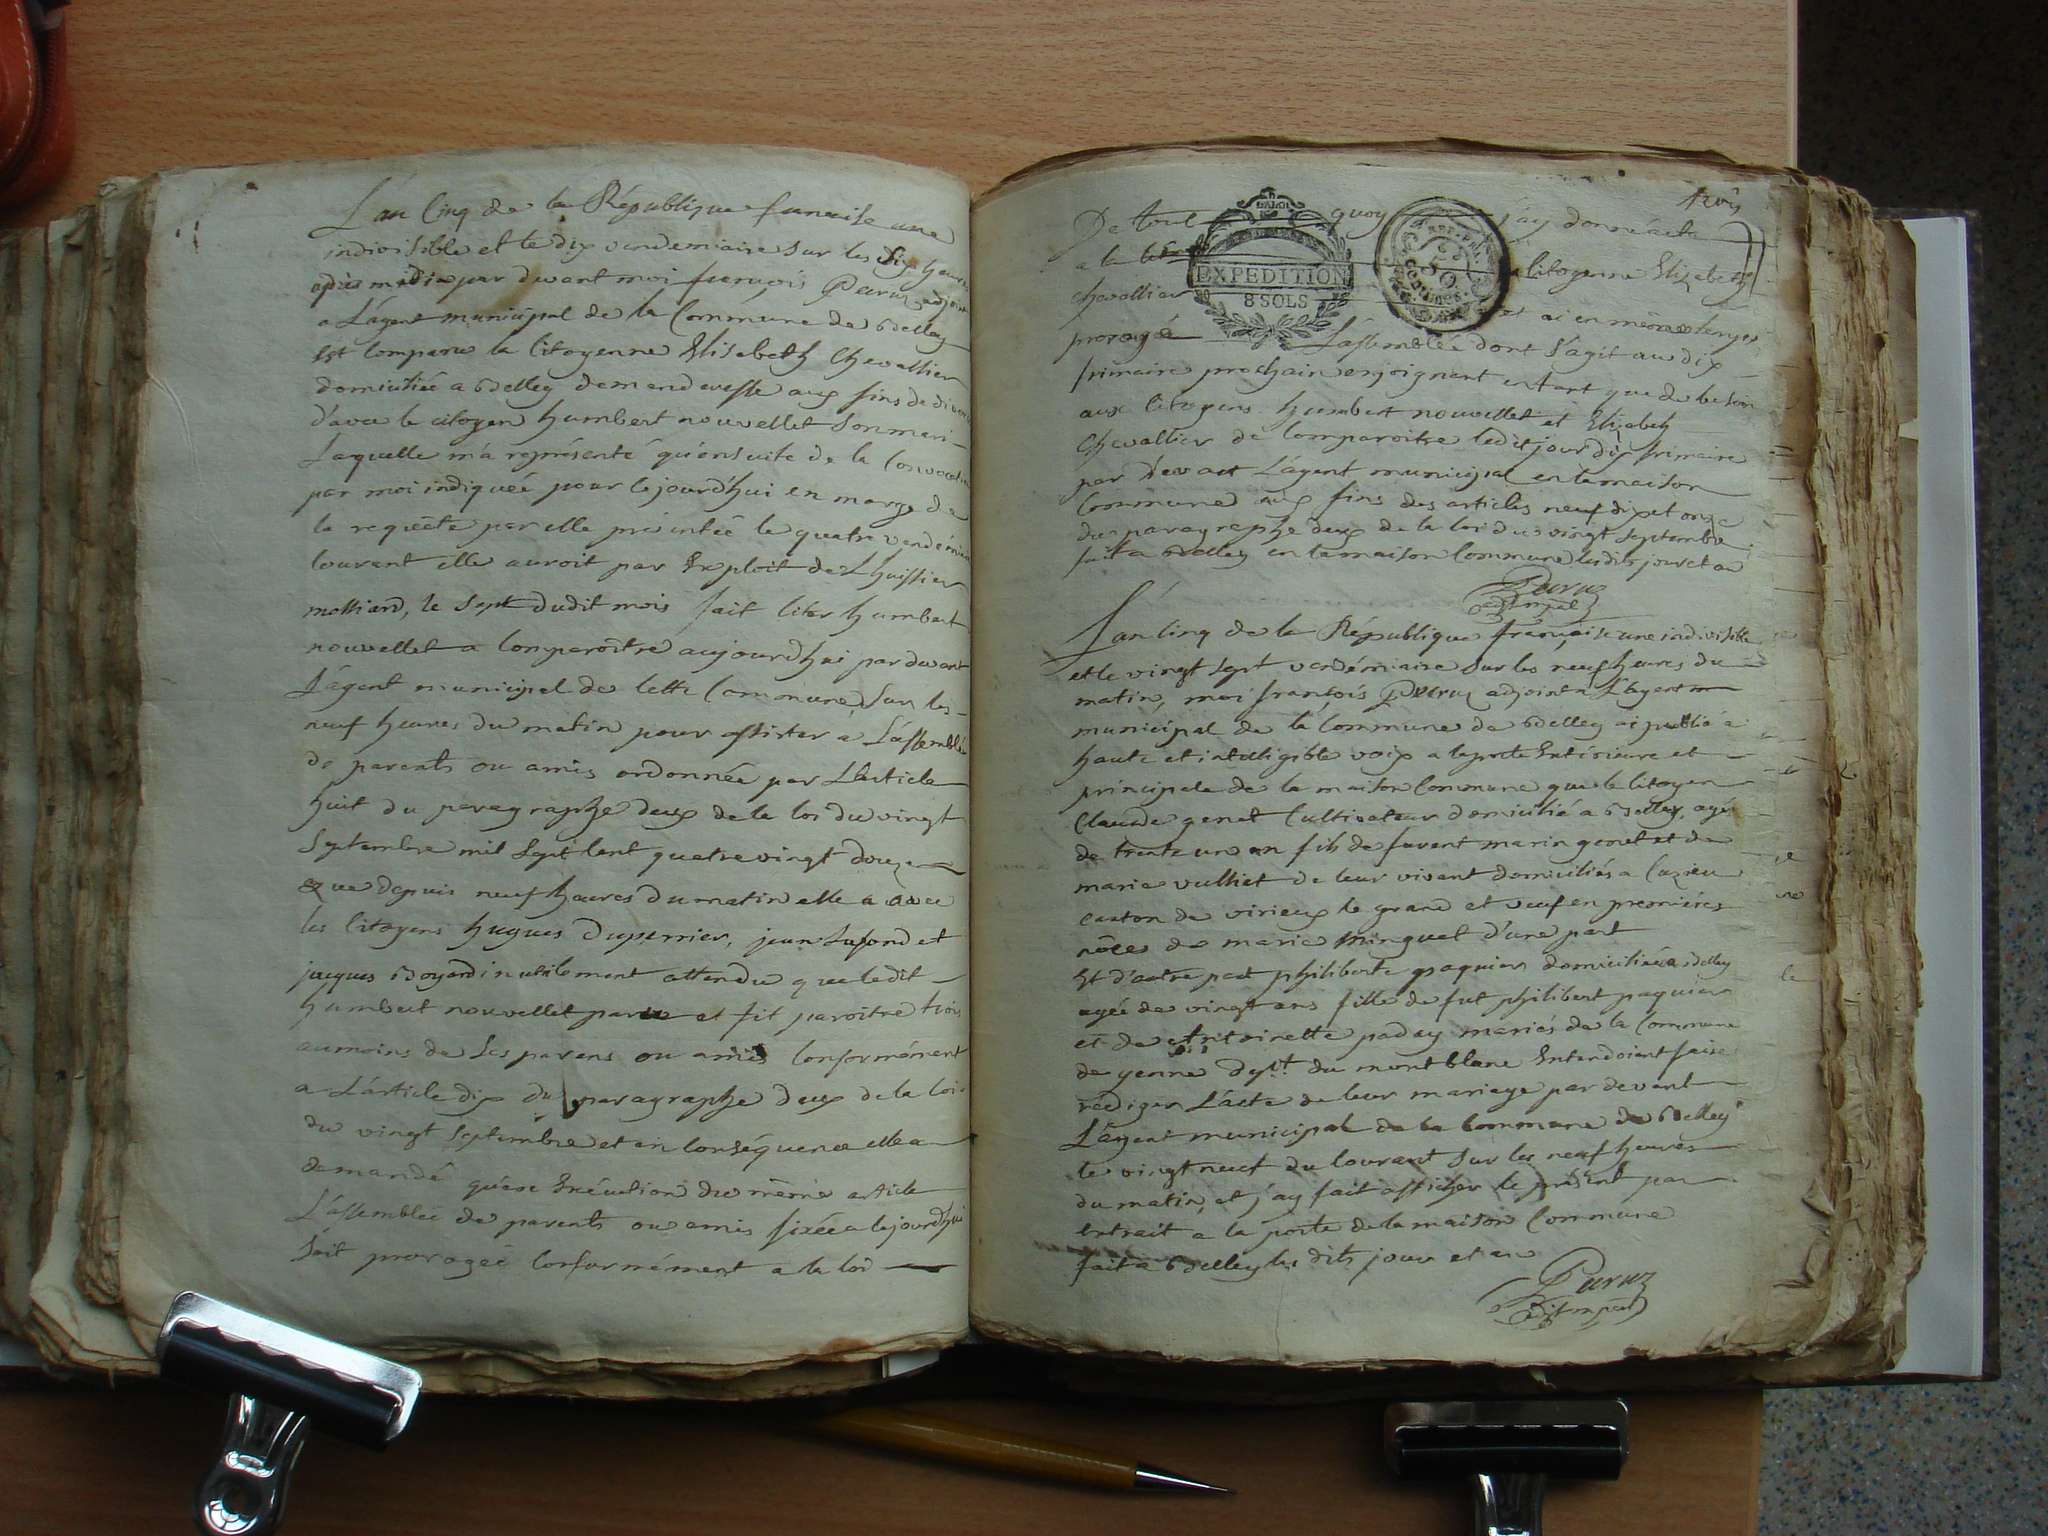 L'an Cinq de la République francaise une
indivisible et le dix vendemiaire sur les six heures
après midi par devant moi françois Peruz adjoint
a L'agent municipal de la Commune de Belley
Est Comparue la Citoyenne Elisabeth Chevallier
domiciliée a Belley demanderesse aux fins de divorce
d'avec le citoyen humbert nouvellet Son mari
Laquelle m'a représenté qu'ensuite de la Convocation
par moi indiquée pour le jourd'hui en marge de
la requête par elle présentée le quatre vendémiaire
Courant elle auroit par Exploit de L'huissier
molliard, le sept dudit mois fait Citer humbert
nouvellet a Comparoître aujourd'hui par devant
L'agent municipal de Cette Commune, Sur les
neuf heures du matin pour assister a L'assemblée
de parents ou amis ordonnée par L'article
huit du paragraphe deux de la loi du vingt
Septembre mil Sept Cent quatre vingt douze
Que depuis neuf heures du matin elle a avec
les Citoyens hugues Duperrier, jean Lafond et
jacques Boyard inutilement attendu que ledit
humbert nouvellet parut et fit paroitre trois
aumoins de Ses parens ou amis Conformément
a L'article dix du paragraphe deux de la loi
du vingt Septembre et en Conséquence elle a
demandé qu'en Exécution du même article
L'assemblée de parents ou amis fixée a le jourd'hui
Soit prorogée Conformément a la loi
trois
De tout quoy j'ay donné acte
a la Citoyenne Elizabeth
EXPEDITION
8 SOLS
50
CENTIMES
chevallier et ai en même temps
prorogé L'assemblée dont S'agit au dix
frimaire prochain enjoignant en tant que de besoin
aux Citoyens humbert nouvellet et Elizabeth
Chevallier de Comparoitre ledit jour dix frimaire
par Devant L'agent municipal en la maison
Commune aux fins des articles neuf dix et onze
du paragraphe deux de la loi du vingt Septembre
fait a Belley en la maison Commune lesdits jour et an
Peruz
adj. mpal
L'an Cinq de la République française une indivisible
et le vingt sept vendémiaire Sur les neuf heures du
matin, moi françois Peruz adjoint a L'agent
municipal de la Commune de Belley ai publié a
haute et intelligible voix a la porte Extérieure et
principale de la maison Commune que le Citoyen
Claude genet Cultivateur domicilié a Belley, agé
de trente un an fils de furent marin genet et de
marie vulliet de leur vivant domiciliés a Cuzieu
Canton de virieux le grand et veuf en premières
nôces de marie minguet d'une part
Et d'autre part philiberte paquier domiciliée a Belley
agée de vingt ans fille de fut philibert paquier
et de Antoinette paday mariés de la Commune
de yenne du mont blanc Entendoient faire
rédiger L'acte de leur mariage par devant
L'agent municipal de la Commune de Belley
le vingt neuf du Courant Sur les neuf heures
du matin, et j'ay fait afficher le présent par
Extrait a la porte de la maison Commune
fait a Belley les dits jour et an
Peruz
adjt mpal